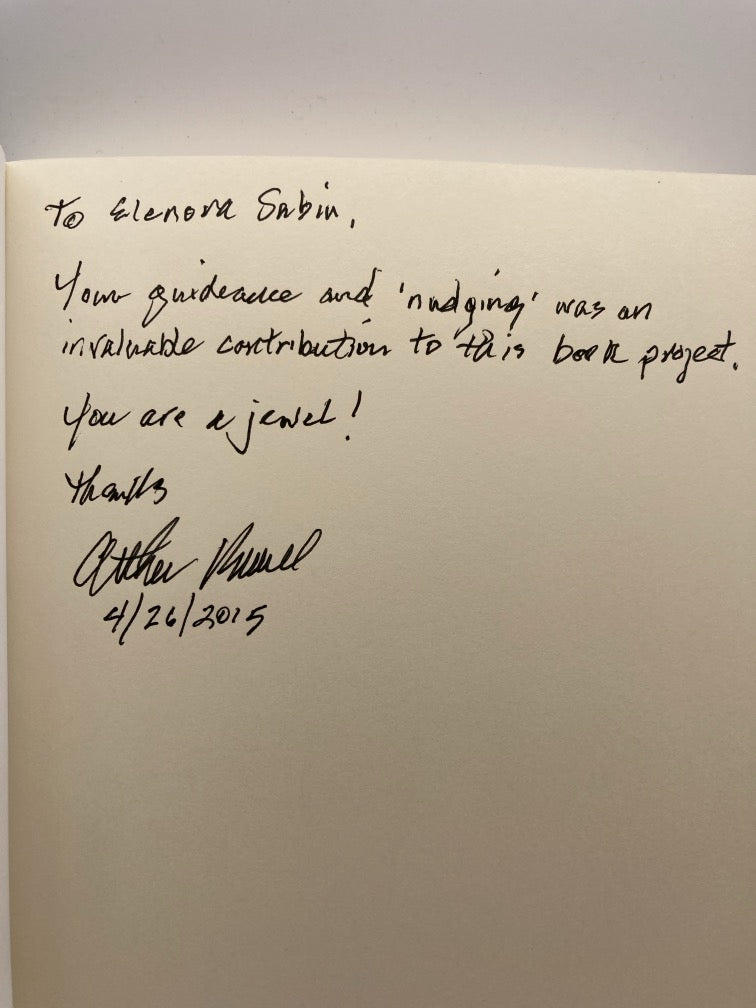 To Elenora Sabin,
Your guideance and 'nudging' was an
invaluable contribution to this book project.
You are a jewel!
Thanks
Arthur
4/26/2015